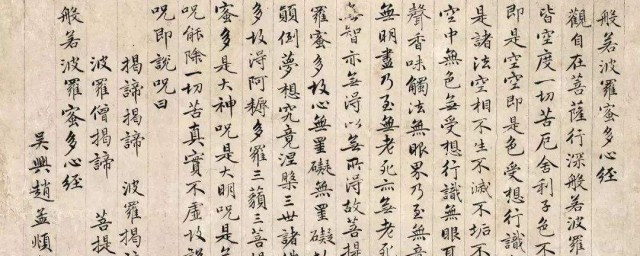 般若波羅蜜多心經
觀自在菩薩行深般若波羅
皆空度一切苦厄舍利子色不
即是空空即是色受想行識
是諸法空相不生不滅不垢不
空中無色無受想行識無眼耳
聲香味觸法無眼界乃至無意
無明盡乃至無老死亦無老死
無智亦無得以無所得故菩提
羅蜜多故心無罣礙無罣礙
顛倒夢想究竟涅槃三世諸
多故得阿耨多羅三藐三菩提
蜜多是大神咒是大明咒是
咒能除一切苦真實不虛故說
咒即說咒曰
揭諦揭諦 波羅揭
波羅僧揭諦 菩提
般若波羅蜜多心經
吳興趙孟頫